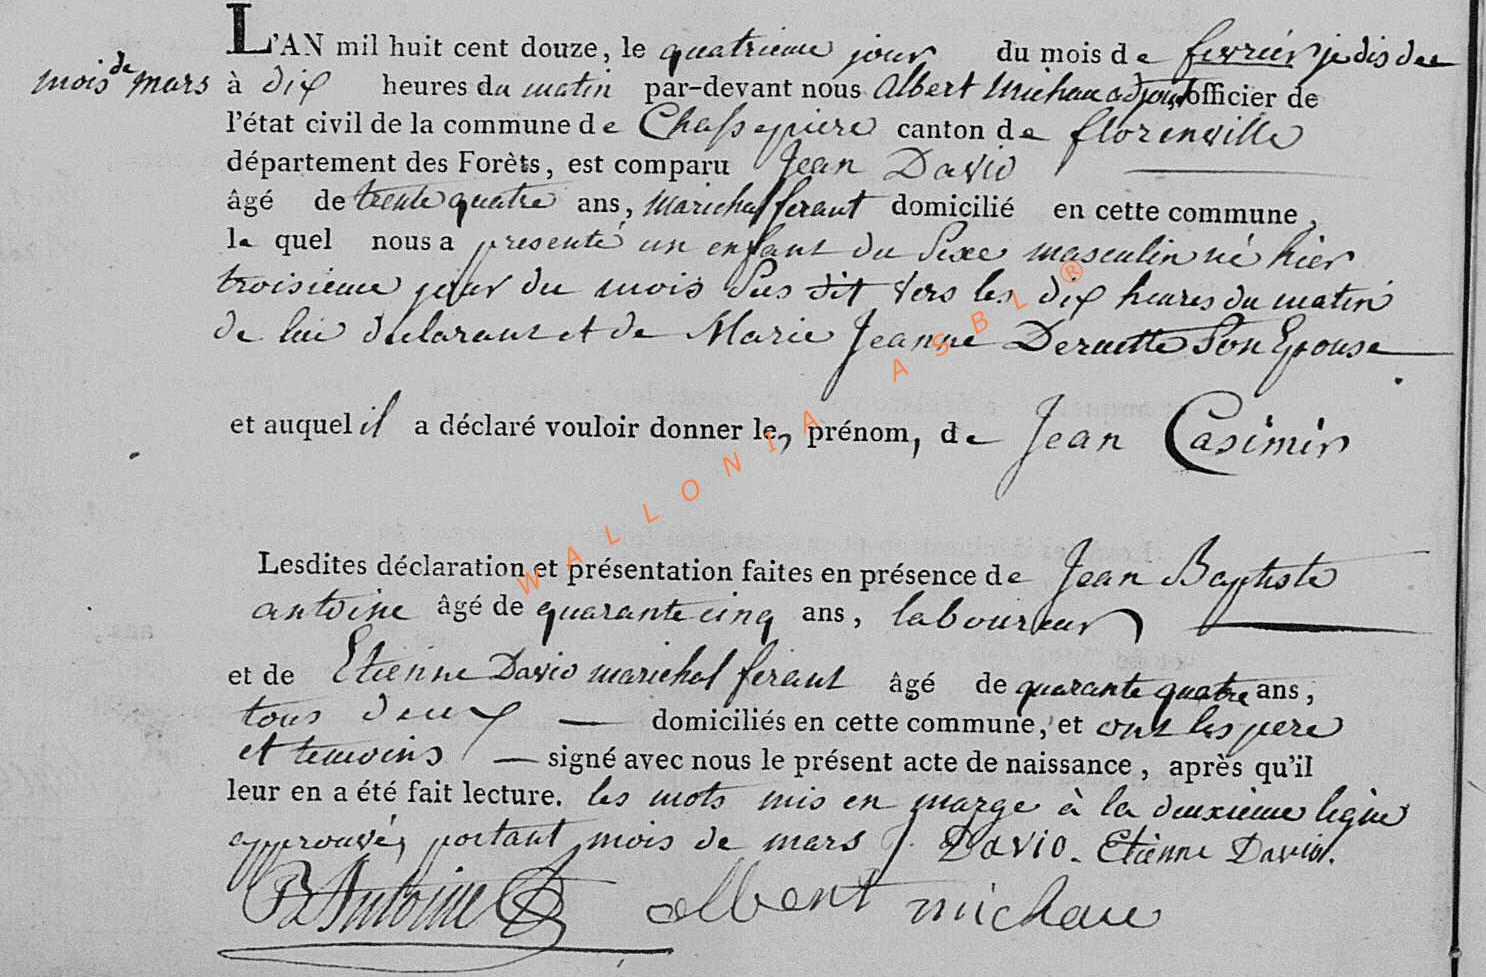 L'AN mil huit cent douze, le quatrieme jour du mois de fevrier je dis du
mois de mars à dix heures du matin par-devant nous Albert Michau adjoint officier de
l'état civil de la commune de Chassepierre canton de florenville
département des Forêts, est comparu Jean David
âgé de trente quatre ans, marichal ferant domicilié en cette commune,
le quel nous a presenté un enfant du sexe masculin né hier
troisieme jour du mois sus dit vers les dix heures du matin
de lui declarant et de Marie Jeanne Son Epouse
et auquel il a déclaré vouloir donner les prénom, de Jean Casimir
Lesdites déclaration et présentation faites en présence de Jean Baptiste
antoine âgé de quarante cinq ans, laboureur
et de Etienne David marichal ferant âgé de quarante quatre ans,
tous deux domiciliés en cette commune, et ont les pere
et temoins signé avec nous le présent acte de naissance, après qu'il
leur en a été fait lecture. les mots mis en marge à la deuxieme ligne
approuvés portant mois de mars J. David. Etienne David.
B Antoine albert michau
WALLONIA ASBL ®